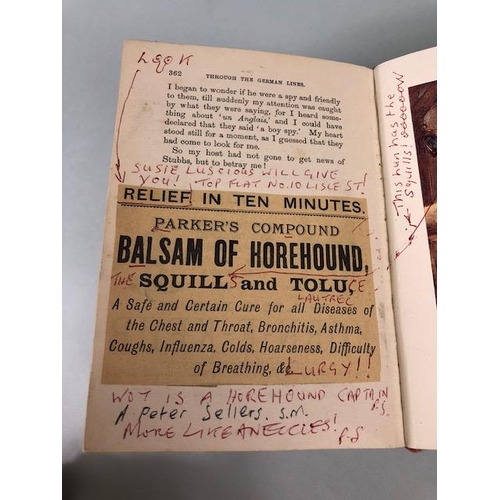 Look
362 THROUGH THE GERMAN LINES.
I began to wonder if he were a spy and friendly
to them, till suddenly my attention was caught
by what they were saying, for I heard some-
thing about 'un Anglais,' and I could have
declared that they said 'a boy spy.' My heart
stood still for a moment, as I guessed that they
had come to look for me.
So my host had not gone to get news of
Stubbs, but to betray me!
SUSIE LUSCIOUS WILL GIVE
YOU! TOP FLAT NO.10 LISLE ST!
RELIEF IN TEN MINUTES.
PARKER'S COMPOUND
BALSAM OF HOREHOUND,
THE SQUILLS and TOLUGE
LAUTREC
A Safe and Certain Cure for all Diseases of
the Chest and Throat, Bronchitis, Asthma,
Coughs, Influenza, Colds, Hoarseness, Difficulty
of Breathing, &c LURGY!!
WOT IS A HOREHOUND CAPTAIN
P.S.
A Peter Sellers. S.M.
MORE LIKE AN ECCLES!
P.S
This hun has the
Squills! OOOOOOW